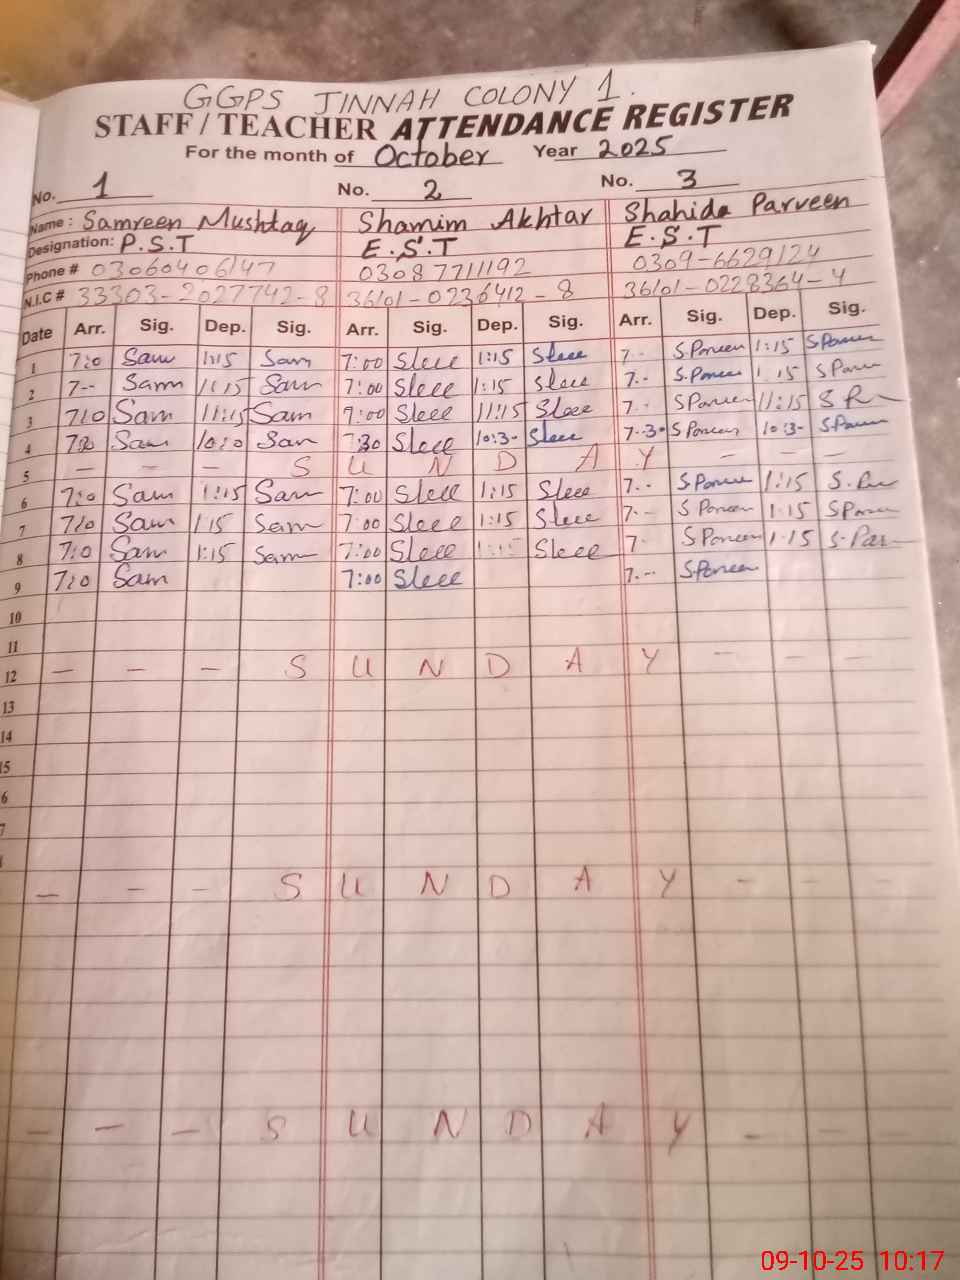 GGPS JINNAH COLONY 1.
STAFF / TEACHER ATTENDANCE REGISTER
For the month of October Year 2025
No. 1 No. 2 No. 3
Name : Samreen Mushtaq Shamim Akhtar Shahida Parveen
Designation: P.S.T E.S.T E.S.T
Phone # 03060406147 03087711192 0309-6629124
N.I.C # 33303-2027742-8 36101-0236412-8 36101-0228364-4
Date Arr. Sig. Dep. Sig. Arr. Sig. Dep. Sig. Arr. Sig. Dep. Sig.
1 7:0 Sam 1:15 Sam 7:00 Sleee 1:15 Sleee 7-- S Parveen 1:15 S Parveen
2 7-- Sam 11:15 Sam 7:00 Sleee 1:15 Sleee 7-- S.Parveen 1 15 S Parveen
3 7:0 Sam 11:15 Sam 7:00 Sleee 11:15 Sleee 7-- S Parveen 11:15
4 Sam 10: Sam 7:30 Sleee 10:3- Sleee 7-3- S Parveen 10:3- S.Parveen
5 - - - S U N D A Y - - -
6 7:0 Sam 1:15 Sam 7:00 Sleee 1:15 Sleee 7-- S Parveen 1:15
7 7:0 Sam 1:15 Sam 7:00 Sleee 1:15 Sleee 7-- S Parveen 1:15 S Parveen
8 7:0 Sam 1:15 Sam 7:00 Sleee 1:15 Sleee 7- S Parveen 1:15 S-Par
9 7:0 Sam 7:00 Sleee 7-- S.Parveen
10
11
12 - - - S U N D A Y - - -
13
14
15
6
7
- - - S U N D A Y - - -
- - - S U N D A Y - - -
09-10-25 10:17